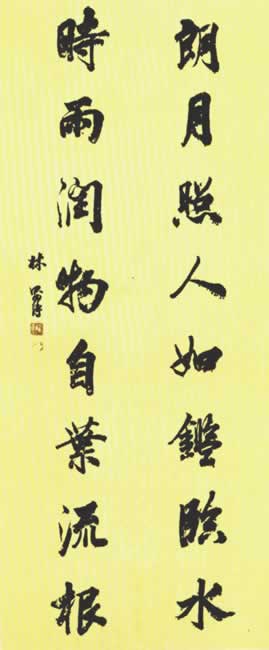 朗月照人如鑑臨水
時雨潤物自葉流根
林